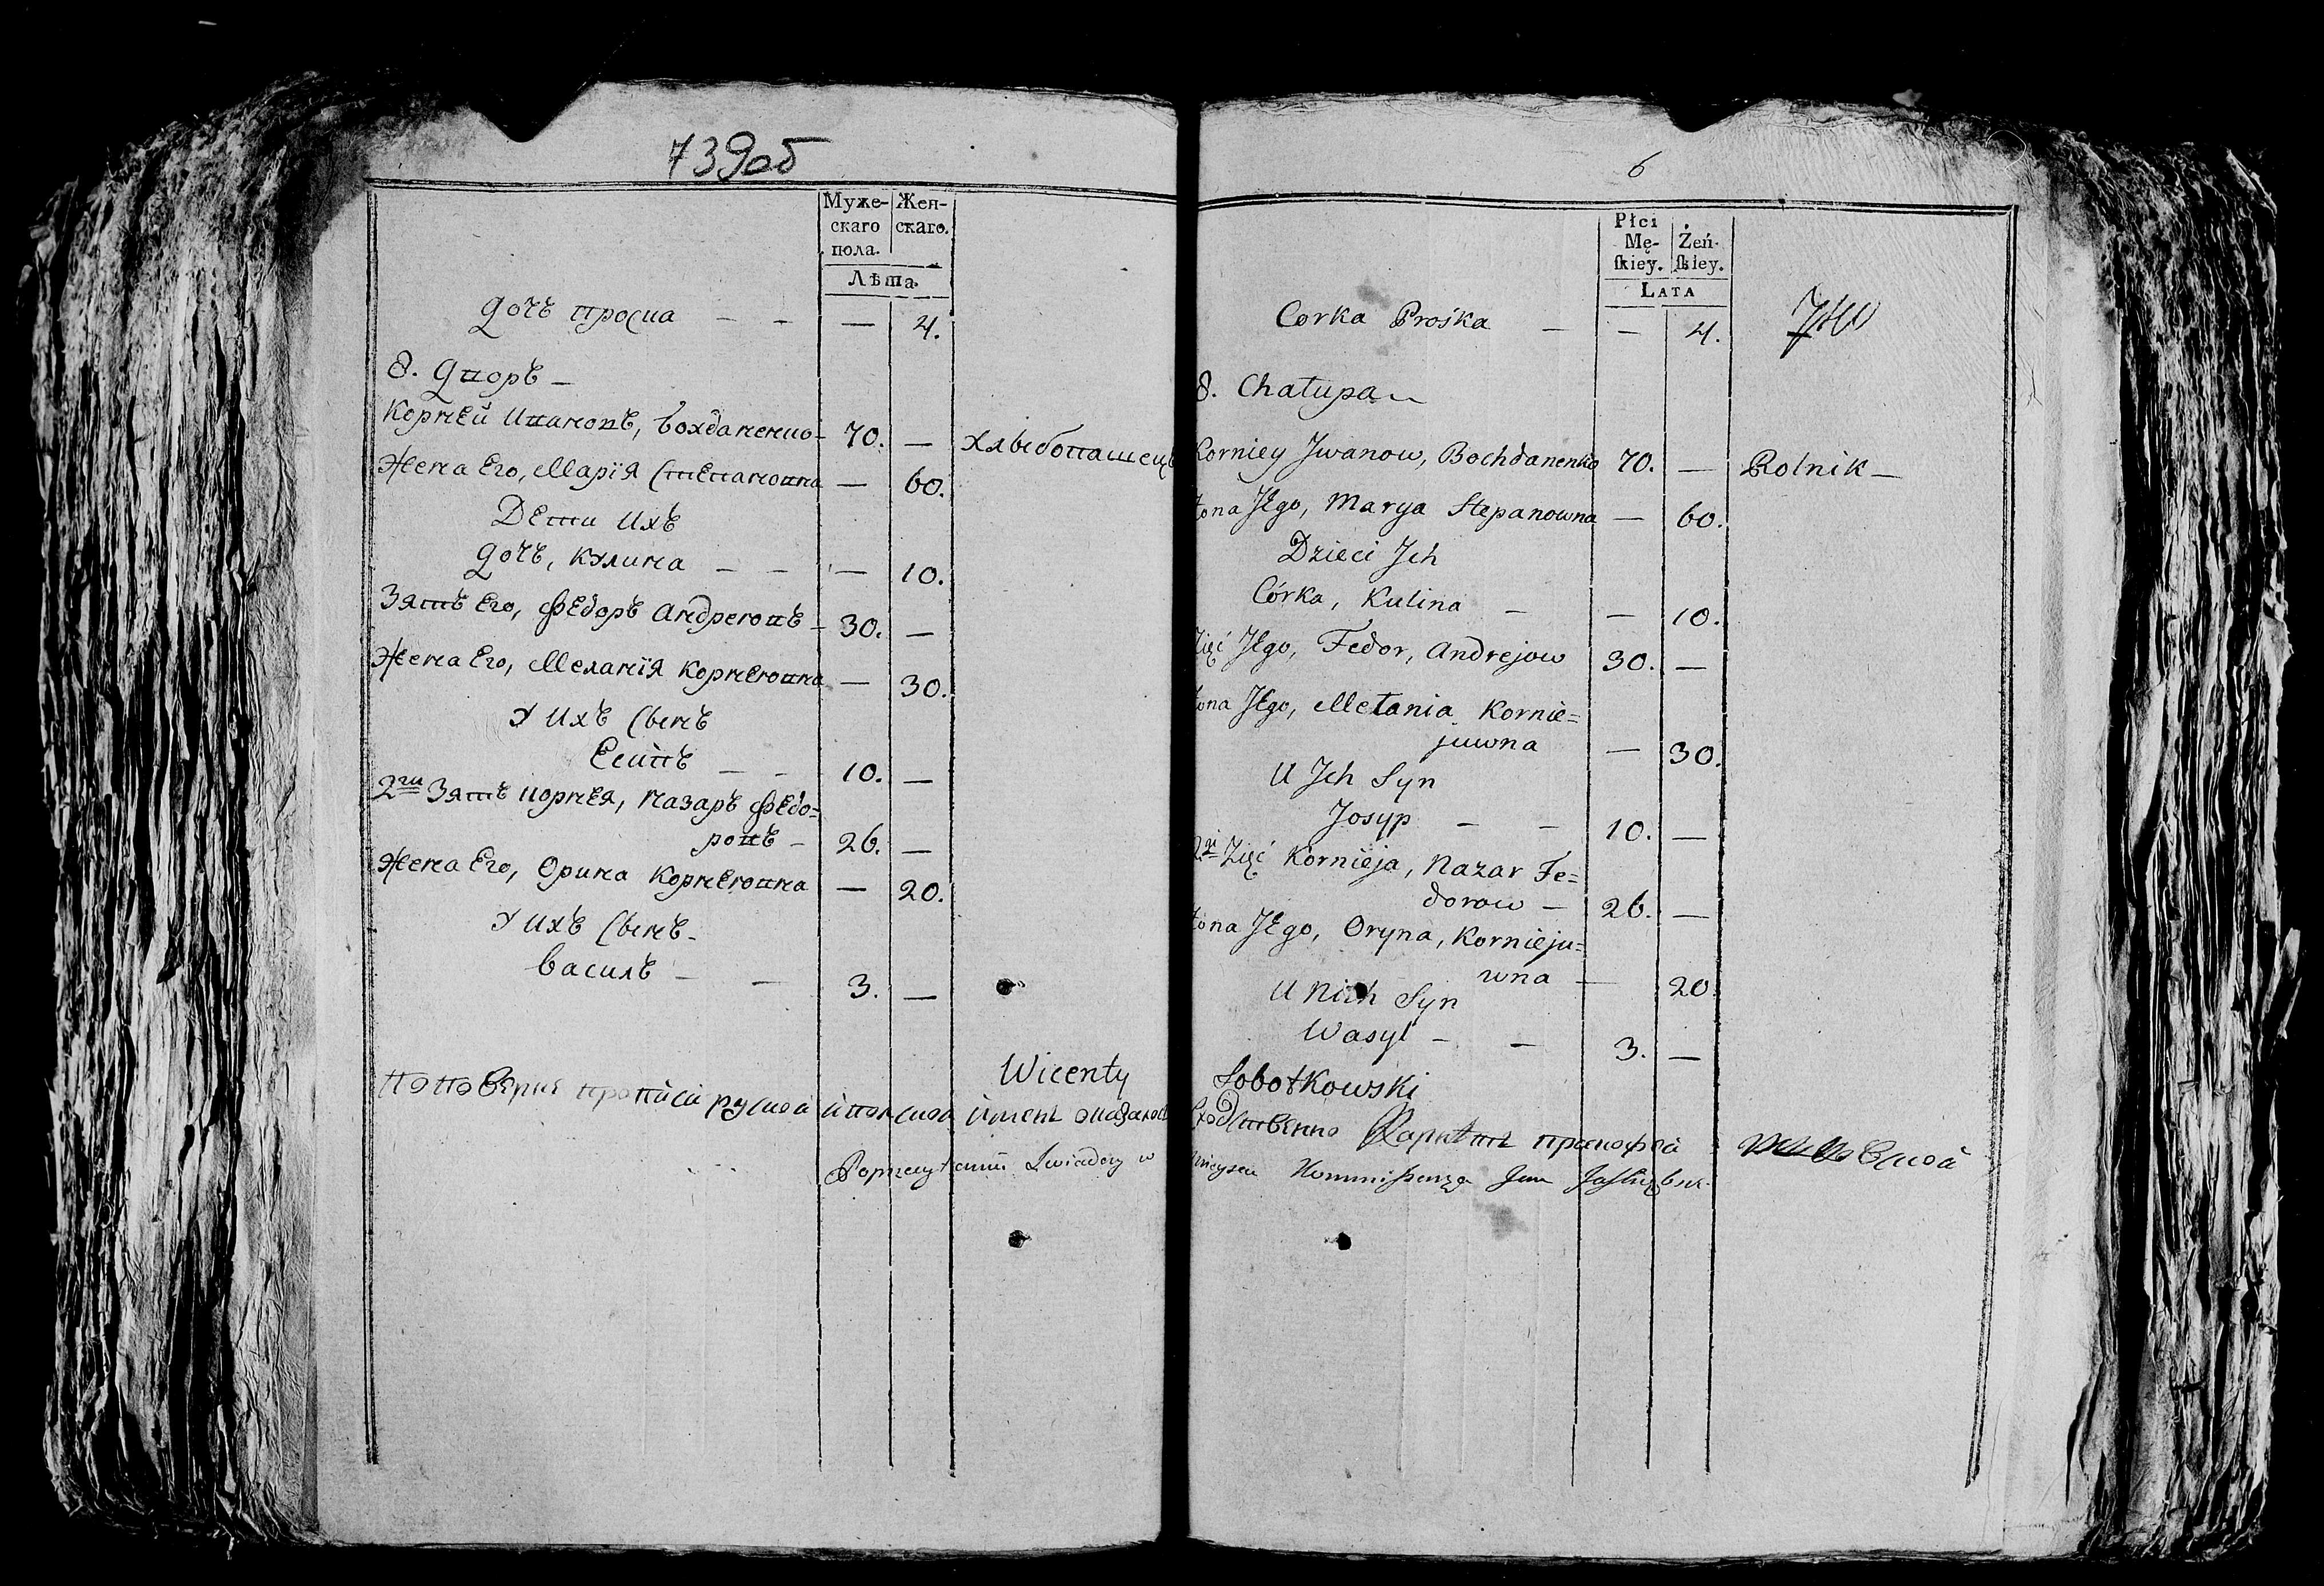 739об
Муже- Жен-
скаго скаго.
пола.
Лѣта.
дочь Проска — — — 4.
8. Дворъ —
Корней Ивановъ, Бохданенко 70. — Хлыбопашецъ
Жена Его, Марія Степановна — 60.
Дети Ихъ
дочь, Кулина — — — 10.
Зять Его, Федоръ Андреювъ — 30. —
Жена Его, Меланія Корнеювна — 30.
У Ихъ Сынъ
Есипъ — — 10. —
2ги Зять Корнея, Назаръ Федо=
ровъ — 26. —
Жена Его, Орина Корнеювна — 20.
У Ихъ Сынъ —
Василь — — 3. —
Wicenty
6
Płci
Mę- Żeń-
skiey. skiey.
LATA
Corka Prośka — — 4.
8. Chałupa —
Korniey Jwanow, Bochdanenko 70. — Rolnik —
żona Jego, Marya Stepanowna — 60.
Dzieci Jch
Córka, Kulina — — 10.
Zięć Jego, Fedor, Andrejow 30. —
żona Jego, Mełania Kornie=
juwna — 30.
U Jch Syn
Josyp — — 10. —
2gi Zięć Kornieja, Nazar Fe=
dorow — 26. —
żona Jego, Oryna, Kornieju=
wna — 20.
U Nich Syn
Wasyl — — 3. —
Sobotkowski